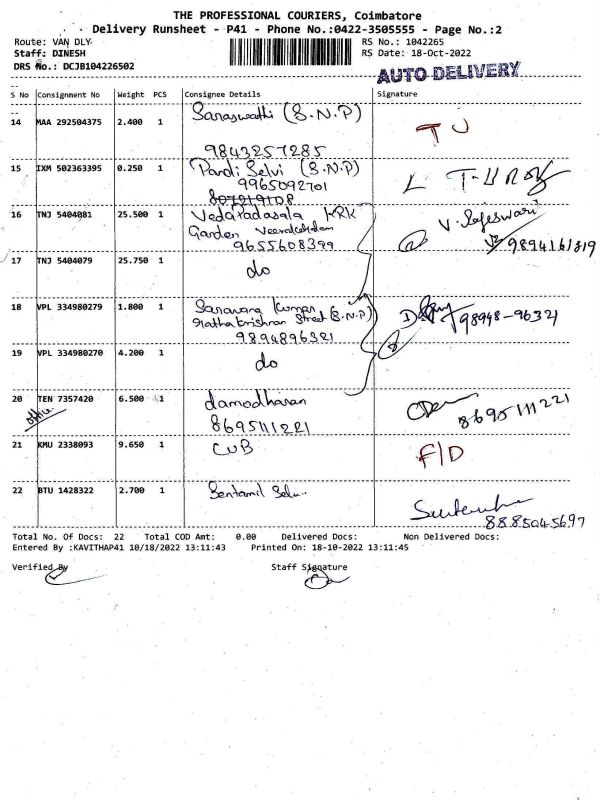 THE PROFESSIONAL COURIERS, Coimbatore
Delivery Runsheet - P41 - Phone No.:0422-3505555 - Page No.:2
Route: VAN DLY
RS No.: 1042265
Staff: DINESH
RS Date: 18-Oct-2022
DRS No.: DCJB104226502
AUTO DELIVERY
S No Consignment No Weight PCS Consignee Details Signature
14 MAA 292504375 2.400 1 Saraswathi (S.N.P)
9843257285
TU
15 IXM 502363395 0.250 1 Pandi Selvi (S.N.P)
9965092701
16 TNJ 5404081 25.500 1 Vedapadasala KRK
Garden
9655608399
V. Rajeswari
9894161819
17 TNJ 5404079 25.750 1 do
18 VPL 334980279 1.800 1 Saravana Kumar
Street (S.N.P)
9894896321
98948-96321
19 VPL 334980270 4.200 1 do
20 TEN 7357420 6.500 1 damodharan
office
8695111221
8695111221
21 KMU 2338093 9.650 1 CUB F/D
22 BTU 1428322 2.700 1 Sentamil Selvi
8885045697
Total No. Of Docs: 22 Total COD Amt: 0.00 Delivered Docs: Non Delivered Docs:
Entered By :KAVITHAP41 10/18/2022 13:11:43 Printed On: 18-10-2022 13:11:45
Verified By Staff Signature